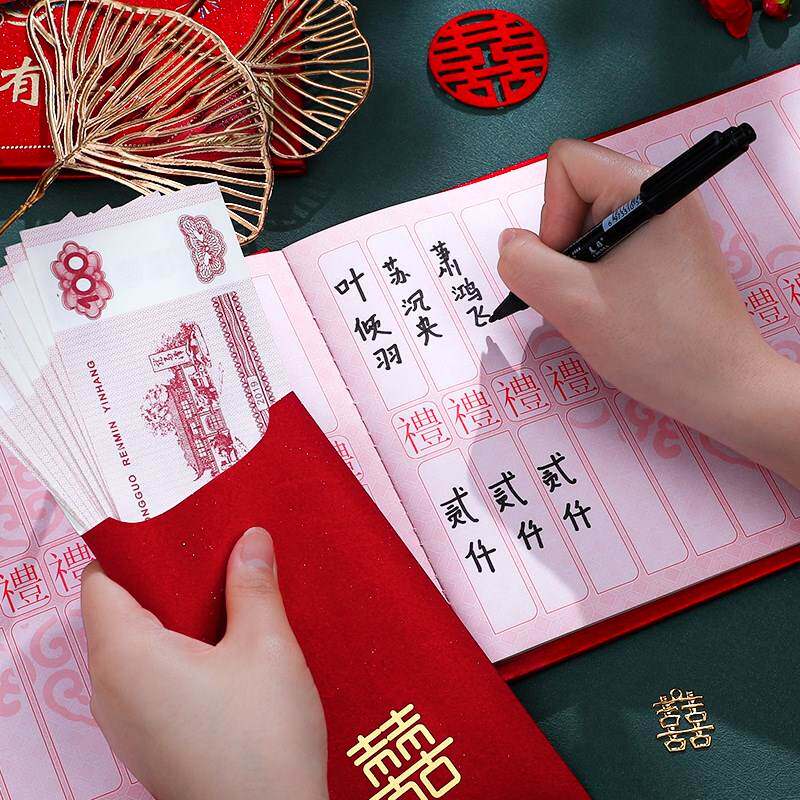 有
囍
100
ZHONGGUO RENMIN YINHANG
2019
叶倾羽
苏沉央
萧鸿飞
禮 禮 禮 禮
禮 禮
贰仟
贰仟
贰仟
禮
禮 禮
囍
囍